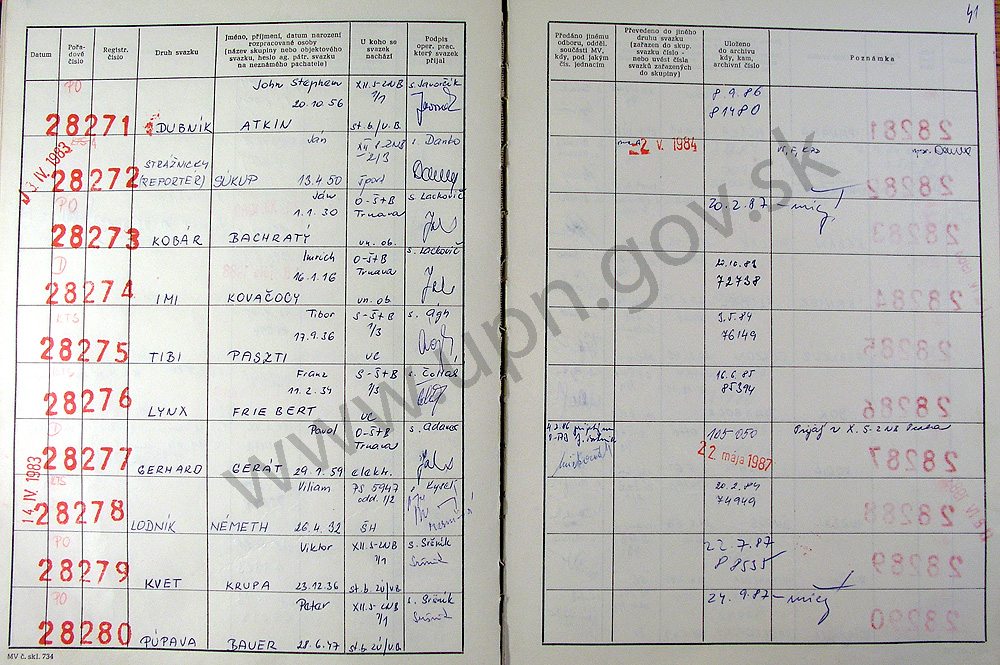 41
Datum
Pořadové číslo
Registr. číslo
Druh svazku
Jméno, příjmení, datum narození
rozpracované osoby
(název skupiny nebo objektového
svazku, heslo ag. pátr. svazku
na neznámého pachatele)
U koho se
svazek
nachází
Podpis
oper. prac.
který svazek
přijal
Předáno jinému
odboru, odděl.
součásti MV,
kdy, pod jakým
čís. jednacím
Převedeno do jiného
druhu svazku
(zařazen do skup.
svazku číslo -
nebo uvést čísla
svazků zařazených
do skupiny)
Uloženo
do archivu
kdy, kam,
archivní číslo
Poznámka
PO
John Stephen XII.S-ZNB s. Javorčík
20.10.56 1/1
28271 DUBNÍK ATKIN st.b./ú.B.
8.9.86
81480
13. IV. 1983
Ján XII.S-ZNB s. Danko
STRÁŽNICKY 2/3
28272 (REPORTER) SÚKUP 13.4.50 Šport
22 V. 1984
PO
Ján O-ŠtB s. Lackovič
1.1.30 Trnava
28273 KOBÁR BACHRATÝ un. ob.
20.2.87
D
Imrich O-ŠtB s. Lackovič
16.1.16 Trnava
28274 IMI KOVAČOCY un. ob.
72738
KTS
Tibor S-ŠtB s. Ágh
17.9.36 1/3
28275 TIBI PASZTI VC
3.5.84
76149
Franz S-ŠtB
11.2.34 1/3
28276 LYNX FRIEBERT VC
16.6.85
85394
D
Pavol O-ŠtB s. Adamec
Trnava
28277 GERHARD GERÁT 29.1.59 elekt.
105 050
22 mája 1987
14. IV. 1983
KTS
Viliam PS 5947 Kyselý
odd. 1/2
28278 LODNÍK NÉMETH 26.4.32 ŠH
20.2.84
74949
PO
Viktor XII.S-ZNB s. Sršník
1/1
28279 KVET KRUPA 23.12.36 st.b. zú/ú.B.
22.7.87
88535
PO
Peter XII.S-ZNB s. Sršník
1/1
28280 PÚPAVA BAUER 28.6.47 st.b. zú/ú.B.
24.9.87
MV č. skl. 734
www.upn.gov.sk